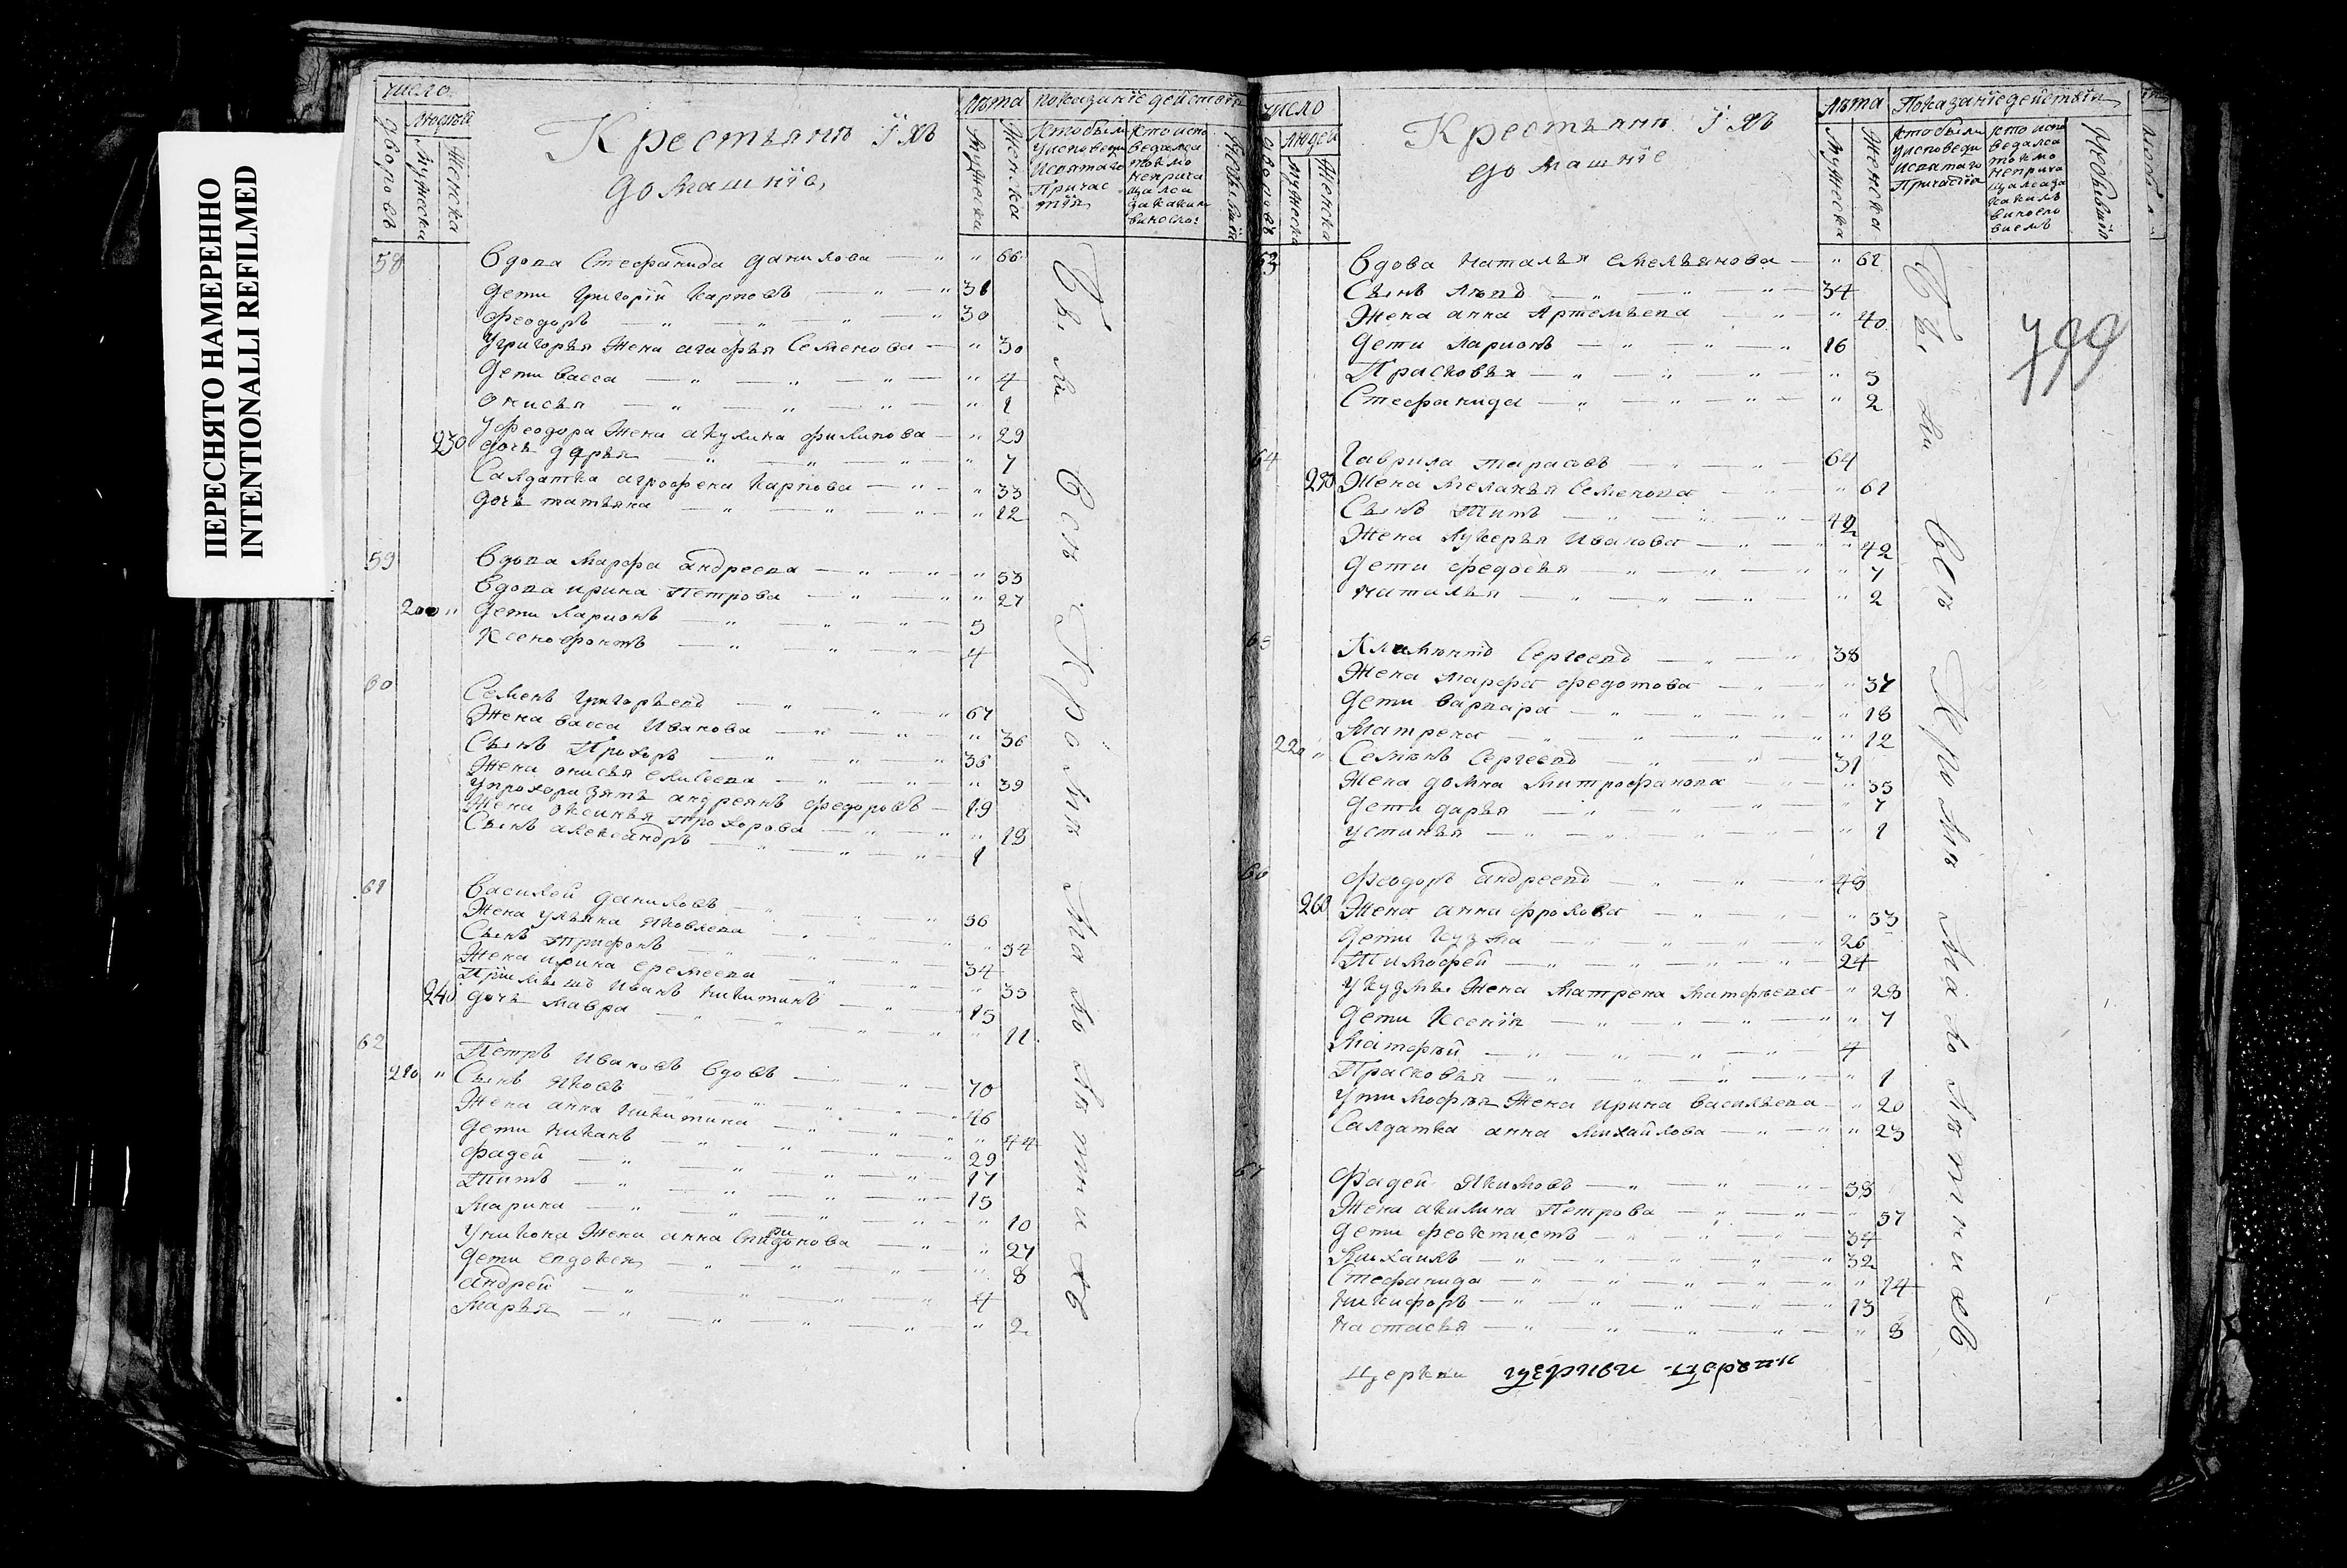 ПЕРЕСНЯТО НАМЕРЕННО
INTENTIONALLI REFILMED
число
дворовъ
людей
мужеска
женска
Крестьяня їхъ
домашнїе,
лѣта
мужеска
женска
показанїе действїя
кто были
у исповеди
и святаго
причас
тїя
кто испо
ведался
токмо
неприча
щался
за каким
виносло:
небывшїй
58 Вдова Стефанида Данилова " 66
дети Григорїй Карповъ 31
Феодоръ 30
у Григорья жена агафья Семенова " 30
дети васса " 4
онисья " 1
у феодора жена акулина филипова " 29
230 дочь дарья " 7
Салдатка аграфена Карпова " 33
дочь татьяна " 12
59 Вдова марфа андреева " 53
Вдова ирина Петрова " 27
200 " дети ларионъ 5
Ксенофонтъ 4
60 Семенъ григорьевъ 67
Жена васса Иванова " 36
Сынъ Прохоръ 36
Жена онисья елисеева " 39
у прохора зять андреянъ федоровъ 19
Жена оксинья прохорова " 19
Сынъ александръ 1
61 Василей даниловъ 56
Жена ульяна яковлева " 54
Сынъ трифонъ 34
Жена ирина еремеева " 35
Прїимышъ Иванъ никитинъ 15
240 дочь мавра " 11
62 Петръ ивановъ вдовъ 70
210 " Сынъ яковъ 46
Жена анна никитина " 44
дети никонъ 29
фадей 17
титъ 15
марина " 10
у никона жена анна Спиридонова " 27
дети евдокея " 8
андрей 4
марья " 2
Бы ли Вся Кроми Малолѣтнихъ
число
дворовъ
людей
мужеска
женска
Крестьяня їхъ
домашнїе
лѣта
мужеска
женска
Показанїе действїя
кто были
у исповеди
и святаго
причастїя
кто испо
ведался
токмо
неприча
щался за
какимъ
виносло
виемъ
небывшїя
799
63 Вдова наталья емельянова " 61
Сынъ 34
Жена анна Артемьева " 40
дети ларионъ 16
Прасковья " 5
Стефанида " 2
64 Гаврила тарасовъ 64
250 Жена меланья семенова " 61
Сынъ титъ 42
Жена лукерья иванова " 42
дети федосья " 7
наталья " 2
65 Климентъ Сергеевъ 38
Жена марфа федотова " 37
дети варвара " 18
матрена " 12
220 " Семѣнъ Сергеевъ 31
Жена домна митрофанова " 35
дети дарья " 7
устинья " 1
66 Феодоръ андреевъ 48
260 Жена анна фролова " 53
дети кузма 26
Тимофей 24
у кузмы жена матрена матфѣева " 28
дети Ксенїя " 7
матфѣй 4
Прасковья " 1
у тимофѣя жена ирина васильева " 20
Салдатка анна михайлова " 23
67 Фадей якимовъ 58
Жена акилина Петрова " 57
дети феоктистъ 34
михаилъ 32
Стефанида " 14
никифоръ 13
настасья " 8
Церкви церкви церкви
Бы ли Вся Кроми Малолѣтнихъ